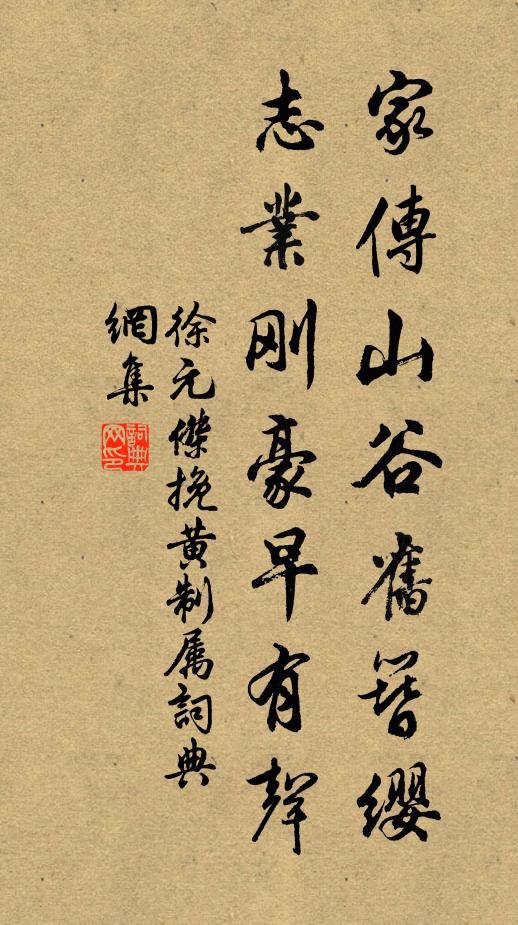 家傳山谷舊簪纓
志業刚豪早有聲
徐元傑挽黄制属詞典
網集
詞典網印